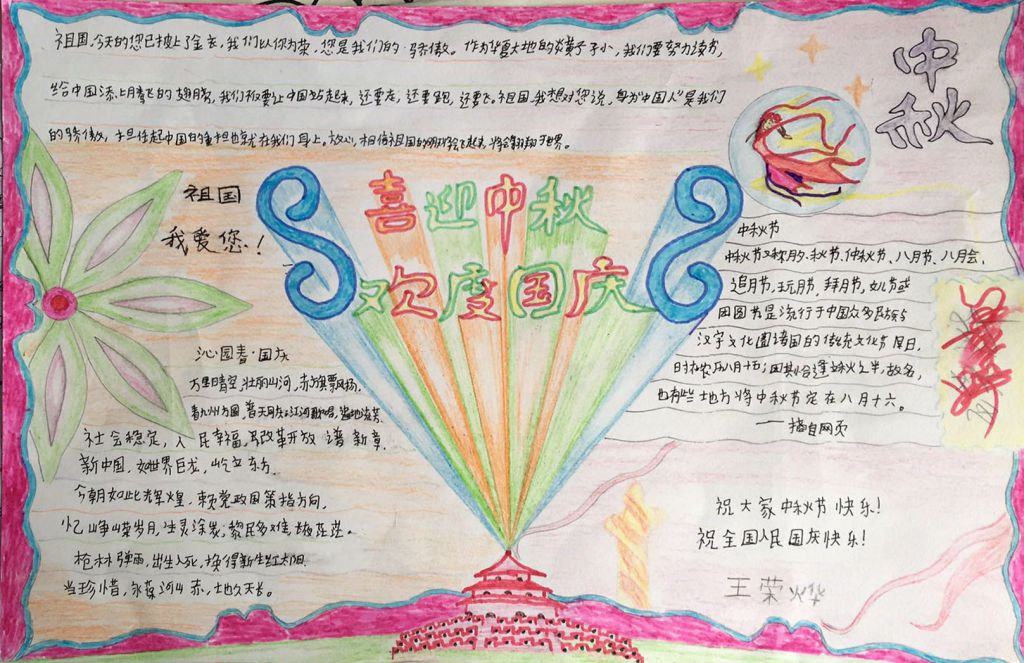 祖国,今天的您已披上了金衣,我们以你为荣,您是我们的骄傲。作为华夏大地的炎黄子小,我们要努力读书,
给中国添上腾飞的翅膀,我们不仅要让中国站起来,还要走,还要跑,还要飞。祖国,我想对您说,身为"中国人"是我们
的骄傲,担任起中国的重担也就在我们身上。放心,相信祖国的明珠会飞起来,将会翱翔于世界。
中秋
祖国
我爱您!
喜迎中秋
欢度国庆
中秋节
中秋节又称月夕、秋节、仲秋节、八月节、八月会,
追月节,玩月节,拜月节,女儿节或
团圆节,是流行于中国众多民族与
汉字文化圈诸国的传统文化节日,
时在农历八月十五;因其恰逢三秋之半,故名,
也有些地方将中秋节定在八月十六。
——摘自网页
沁园春·国庆
万里晴空,壮丽山河,赤旗飘扬。
看九州方圆,普天同庆;江河歌唱,
社会稳定,人民幸福,改革开放谱新章。
新中国,如世界巨龙,屹立东方。
今朝如此辉煌,赖党政国策指方向,
忆峥嵘岁月,生灵涂炭;黎民多难,
枪林弹雨,出生入死,换得新生红太阳
当珍惜,永葆河山赤,地久天长。
祝大家中秋节快乐!
祝全国人民国庆快乐!
王荣烨